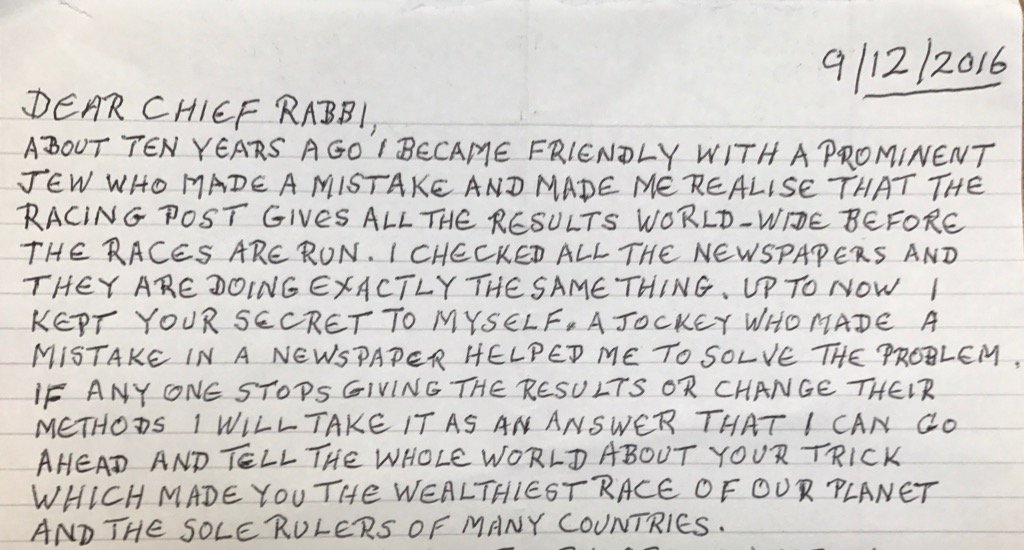 9/12/2016
DEAR CHIEF RABBI,
ABOUT TEN YEARS AGO I BECAME FRIENDLY WITH A PROMINENT
JEW WHO MADE A MISTAKE AND MADE ME REALISE THAT THE
RACING POST GIVES ALL THE RESULTS WORLD-WIDE BEFORE
THE RACES ARE RUN. I CHECKED ALL THE NEWSPAPERS AND
THEY ARE DOING EXACTLY THE SAME THING. UP TO NOW I
KEPT YOUR SECRET TO MYSELF. A JOCKEY WHO MADE A
MISTAKE IN A NEWSPAPER HELPED ME TO SOLVE THE PROBLEM.
IF ANY ONE STOPS GIVING THE RESULTS OR CHANGE THEIR
METHODS I WILL TAKE IT AS AN ANSWER THAT I CAN GO
AHEAD AND TELL THE WHOLE WORLD ABOUT YOUR TRICK
WHICH MADE YOU THE WEALTHIEST RACE OF OUR PLANET
AND THE SOLE RULERS OF MANY COUNTRIES.